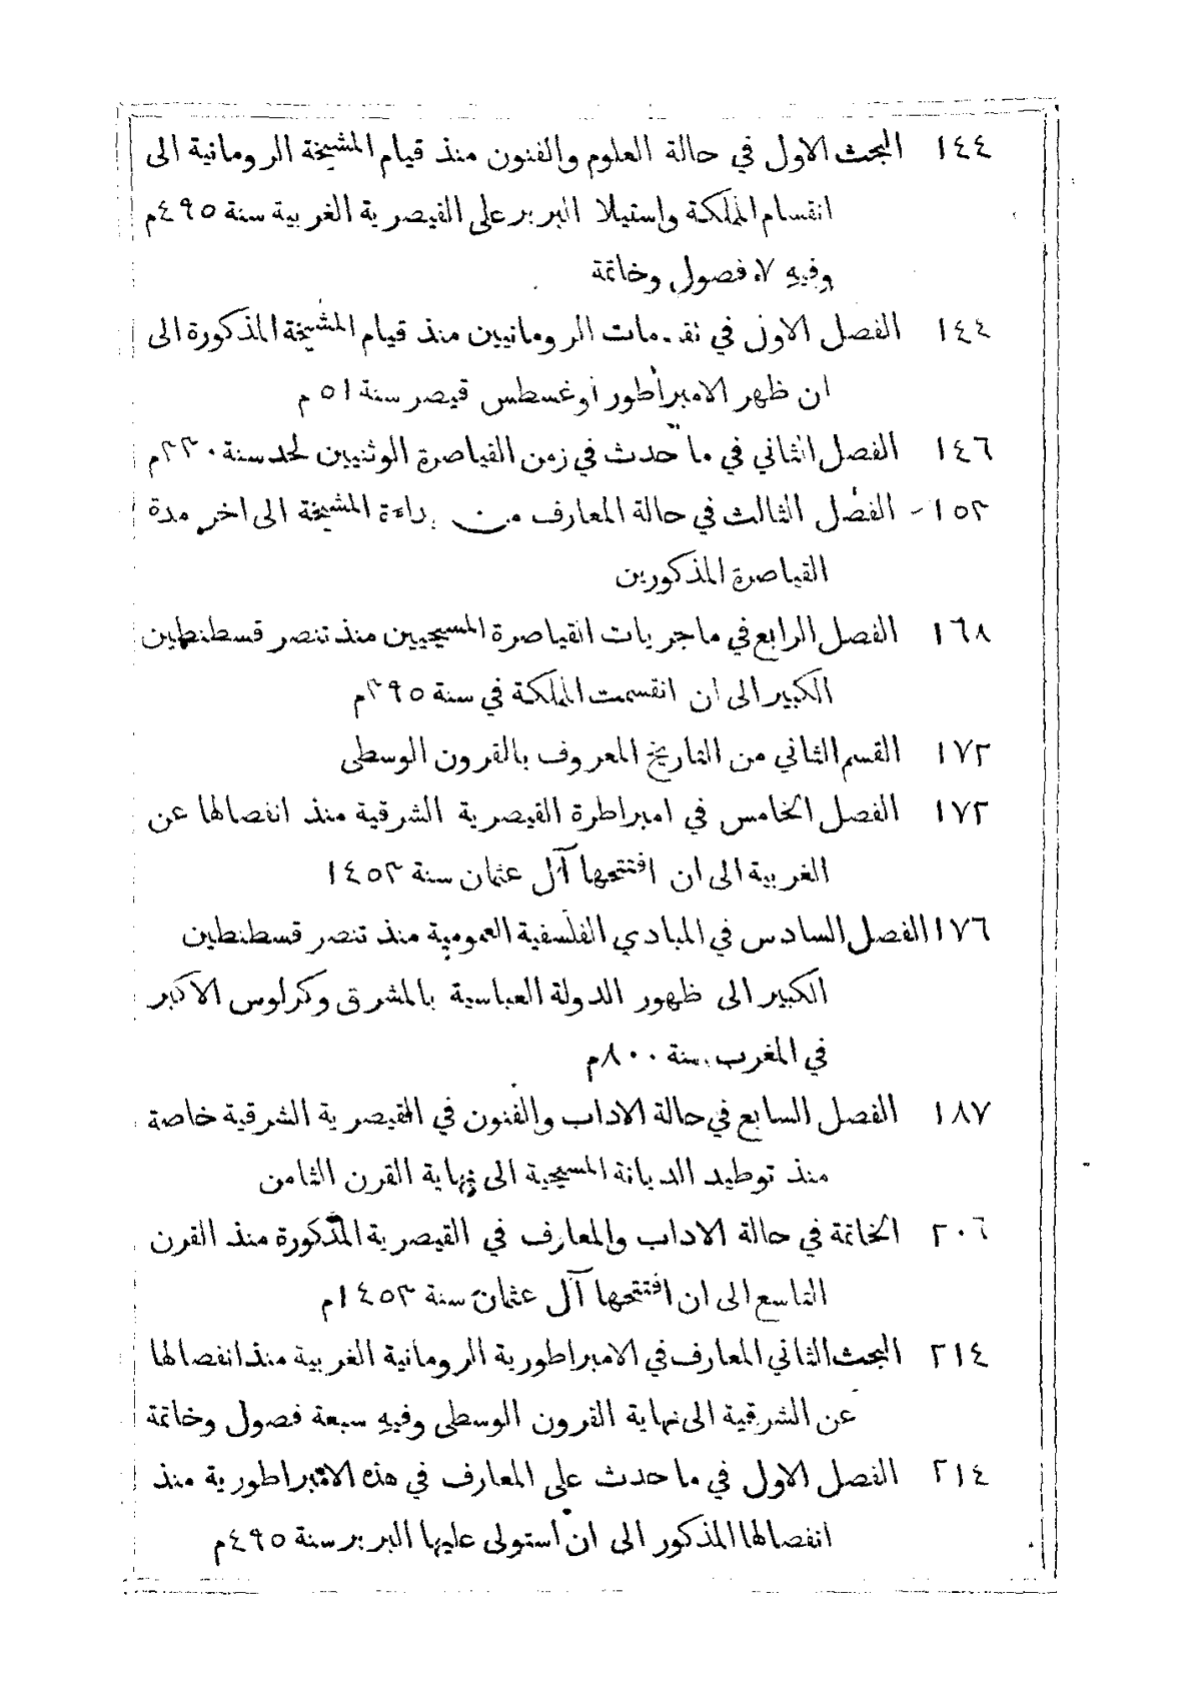 ١٤٤ البحث الاول في حالة العلوم والفنون منذ قيام المشيخة الرومانية الى
انقسام المملكة واستيلا البربر على القيصرية الغربية سنة ٤٩٥م
وفيهِ ٧ فصول وخاتمة
١٤٤ الفصل الاول في تقدمات الرومانيين منذ قيام المشيخة المذكورة الى
ان ظهر الامبراطور اوغسطس قيصر سنة ٥١ م
١٤٦ الفصل الثاني في ما حدث في زمن القياصرة الوثنيين لحد سنة ٣٣٠م
١٥٣ الفصل الثالث في حالة المعارف من بداءة المشيخة الى اخر مدة
القياصرة المذكورين
١٦٨ الفصل الرابع في ماجريات القياصرة المسيحيين منذ تنصر قسطنطين
الكبير الى ان انقسمت المملكة في سنة ٣٩٥م
١٧٢ القسم الثاني من التاريخ المعروف بالقرون الوسطى
١٧٢ الفصل الخامس في امبراطرة القيصرية الشرقية منذ انفصالها عن
الغربية الى ان افتتحها آل عثمان سنة ١٤٥٣
١٧٦ الفصل السادس في المبادي الفلسفية العمومية منذ تنصر قسطنطين
الكبير الى ظهور الدولة العباسية بالمشرق وكرلوس الاكبر
في المغرب سنة ٨٠٠م
١٨٧ الفصل السابع في حالة الاداب والفنون في القيصرية الشرقية خاصة
منذ توطيد الديانة المسيحية الى نهاية القرن الثامن
٢٠٦ الخاتمة في حالة الاداب والمعارف في القيصرية المذكورة منذ القرن
التاسع الى ان افتتحها آل عثمان سنة ١٤٥٣م
٢١٤ البحث الثاني المعارف في الامبراطورية الرومانية الغربية منذ انفصالها
عن الشرقية الى نهاية القرون الوسطى وفيهِ سبعة فصول وخاتمة
٢١٤ الفصل الاول في ما حدث على المعارف في هذه الامبراطورية منذ
انفصالها المذكور الى ان استولى عليها البربر سنة ٤٩٥م